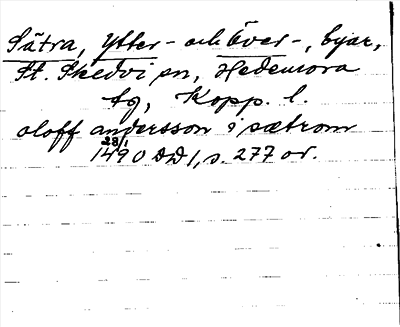 Sätra, Ytter- och Över-, byar,
St. Skedvi sn, Hedemora
tg, Kopp. l.
oloff andersson i sætrom
28/1
1490 DD 1, s. 277 or.